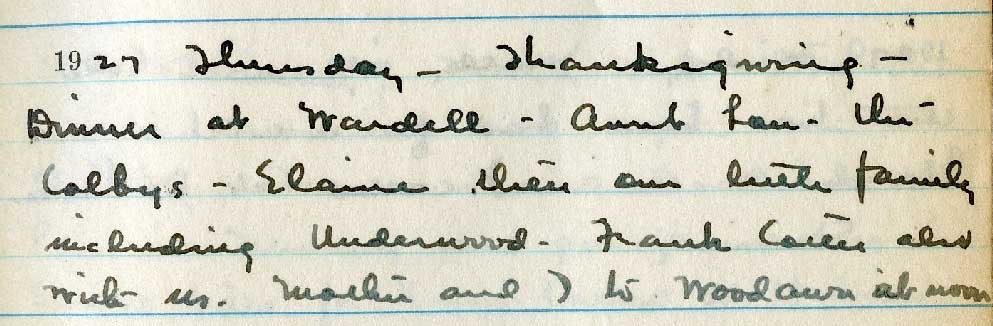 1927 Thursday - Thanksgiving -
Dinner at Wardell - Aunt Lou - the
Colbys - Elaine then our little family
including Underwood - Frank also
with us. Mother and I to Woodlawn at noon